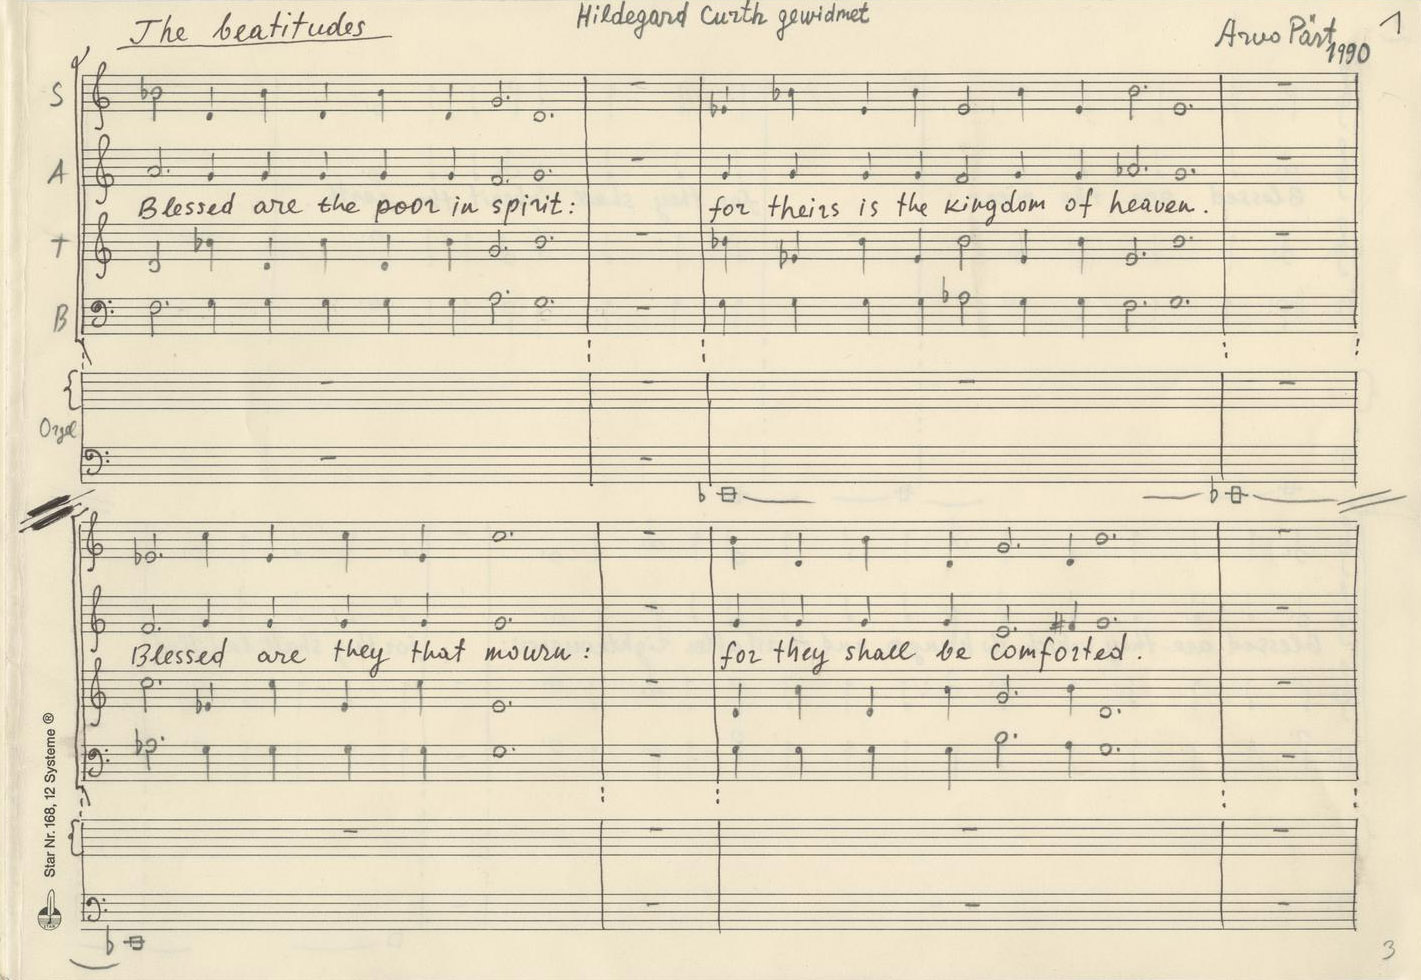 The beatitudes
Hildegard Curth gewidmet
Arvo Pärt
1990
1
S
A
Blessed are the poor in spirit: for theirs is the kingdom of heaven.
T
B
Orgel
Blessed are they that mourn: for they shall be comforted.
Star Nr. 168, 12 Systeme ®
3